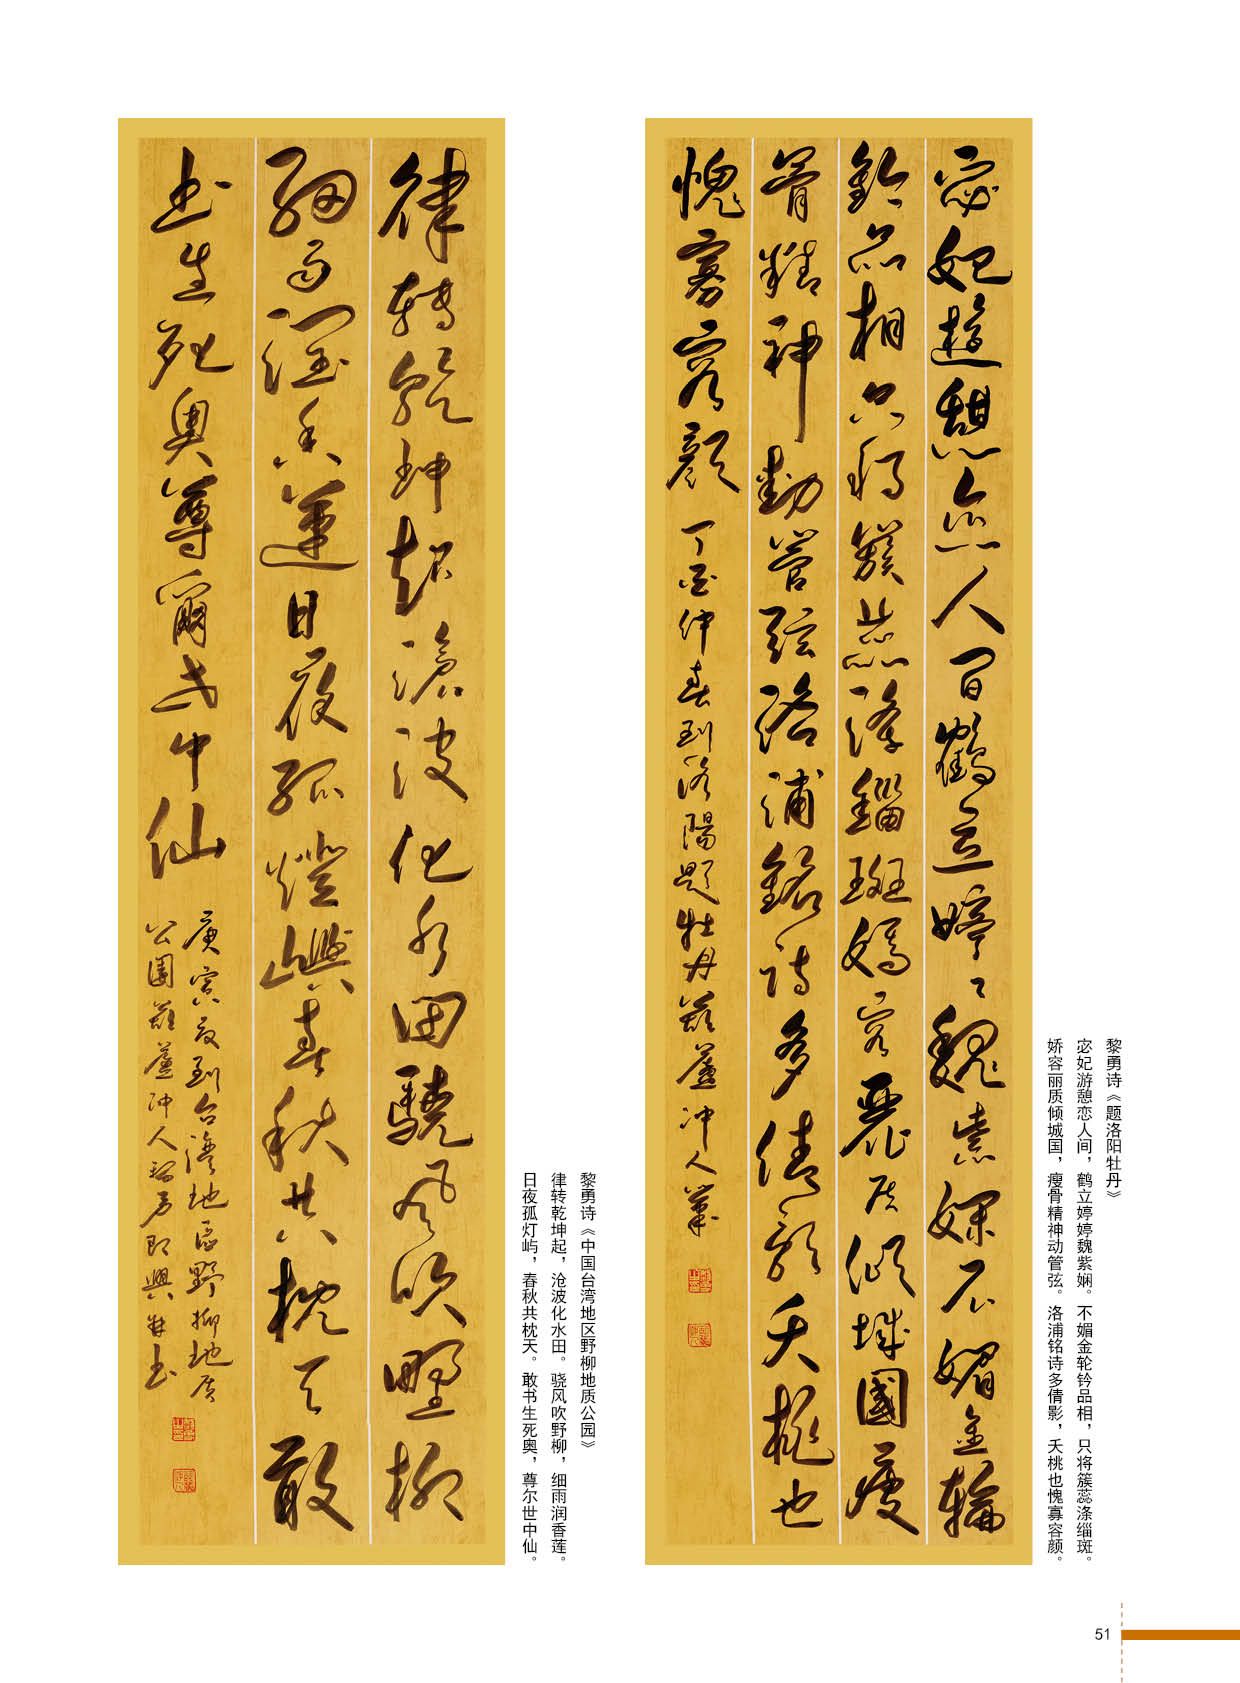 宓妃遊憩恋人间鹤立婷々魏紫娴不媚金轮
钤品相只将簇蕊涤锱斑娇容丽质倾城國瘦
骨精神動管弦洛浦銘诗多倩影夭桃也
愧寡容颜
丁酉仲春到洛陽题牡丹
黎勇诗《题洛阳牡丹》
宓妃游憩恋人间，鹤立婷婷魏紫娴。不媚金轮钤品相，只将簇蕊涤缁斑。
娇容丽质倾城国，瘦骨精神动管弦。洛浦铭诗多倩影，夭桃也愧寡容颜。
律转乾坤起滄波化水田驍风吹野柳
细雨润香莲日夜孤燈嶼春秋共枕天敢
书生死奥尊爾世中仙
庚寅夏到台湾地區野柳地质
黎勇诗《中国台湾地区野柳地质公园》
律转乾坤起，沧波化水田。骁风吹野柳，细雨润香莲。
日夜孤灯屿，春秋共枕天。敢书生死奥，尊尔世中仙。
51